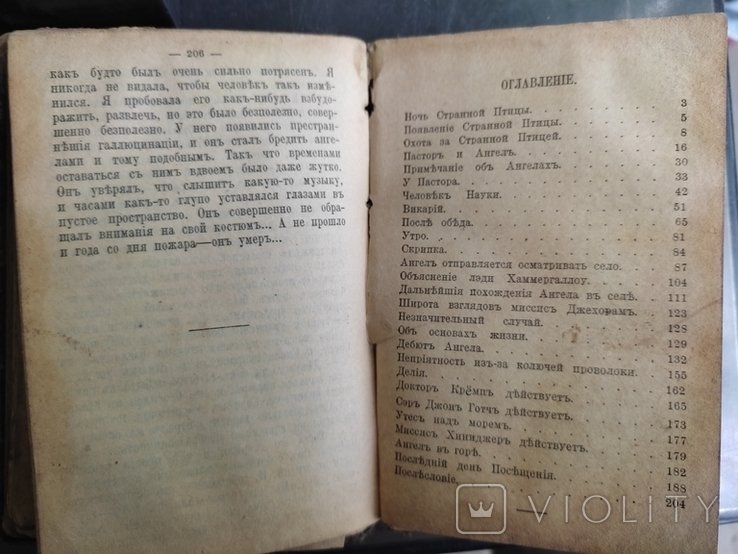 — 206 —
какъ будто былъ очень сильно потрясенъ. Я
никогда не видала, чтобы человѣкъ такъ измѣ-
нился. Я пробовала его какъ-нибудь взбудо-
ражить, развлечь, но это было безполезно, совер-
шенно безполезно. У него появились престран-
нѣйшія галлюцинаціи, и онъ сталъ бредить анге-
лами и тому подобнымъ. Такъ что временами
оставаться съ нимъ вдвоемъ было даже жутко.
Онъ увѣрялъ, что слышитъ какую-то музыку,
и часами какъ-то глупо уставлялся глазами въ
пустое пространство. Онъ совершенно не обра-
щалъ вниманія на свой костюмъ... А не прошло
и года со дня пожара—онъ умеръ...
ОГЛАВЛЕНІЕ.
Ночь Странной Птицы. 3
Появленіе Странной Птицы. 5
Охота за Странной Птицей. 8
Пасторъ и Ангелъ. 16
Примѣчаніе объ Ангелахъ. 30
У Пастора. 33
Человѣкъ Науки. 42
Викарій. 51
Послѣ обѣда. 65
Утро. 81
Скрипка. 84
Ангелъ отправляется осматривать село. 87
Объясненіе лэди Хаммергаллоу. 104
Дальнѣйшія похожденія Ангела въ селѣ. 111
Широта взглядовъ миссисъ Джехорамъ. 123
Незначительный случай. 128
Объ основахъ жизни. 129
Дебютъ Ангела. 132
Непріятность изъ-за колючей проволоки. 155
Делія. 162
Докторъ Крёмпъ дѣйствуетъ. 165
Сэръ Джонъ Готчъ дѣйствуетъ. 173
Утесъ надъ моремъ. 177
Миссисъ Хиниджеръ дѣйствуетъ. 179
Ангелъ въ горѣ. 182
Послѣдній день Посѣщенія. 188
Послѣсловіе. 204
VIOLITY